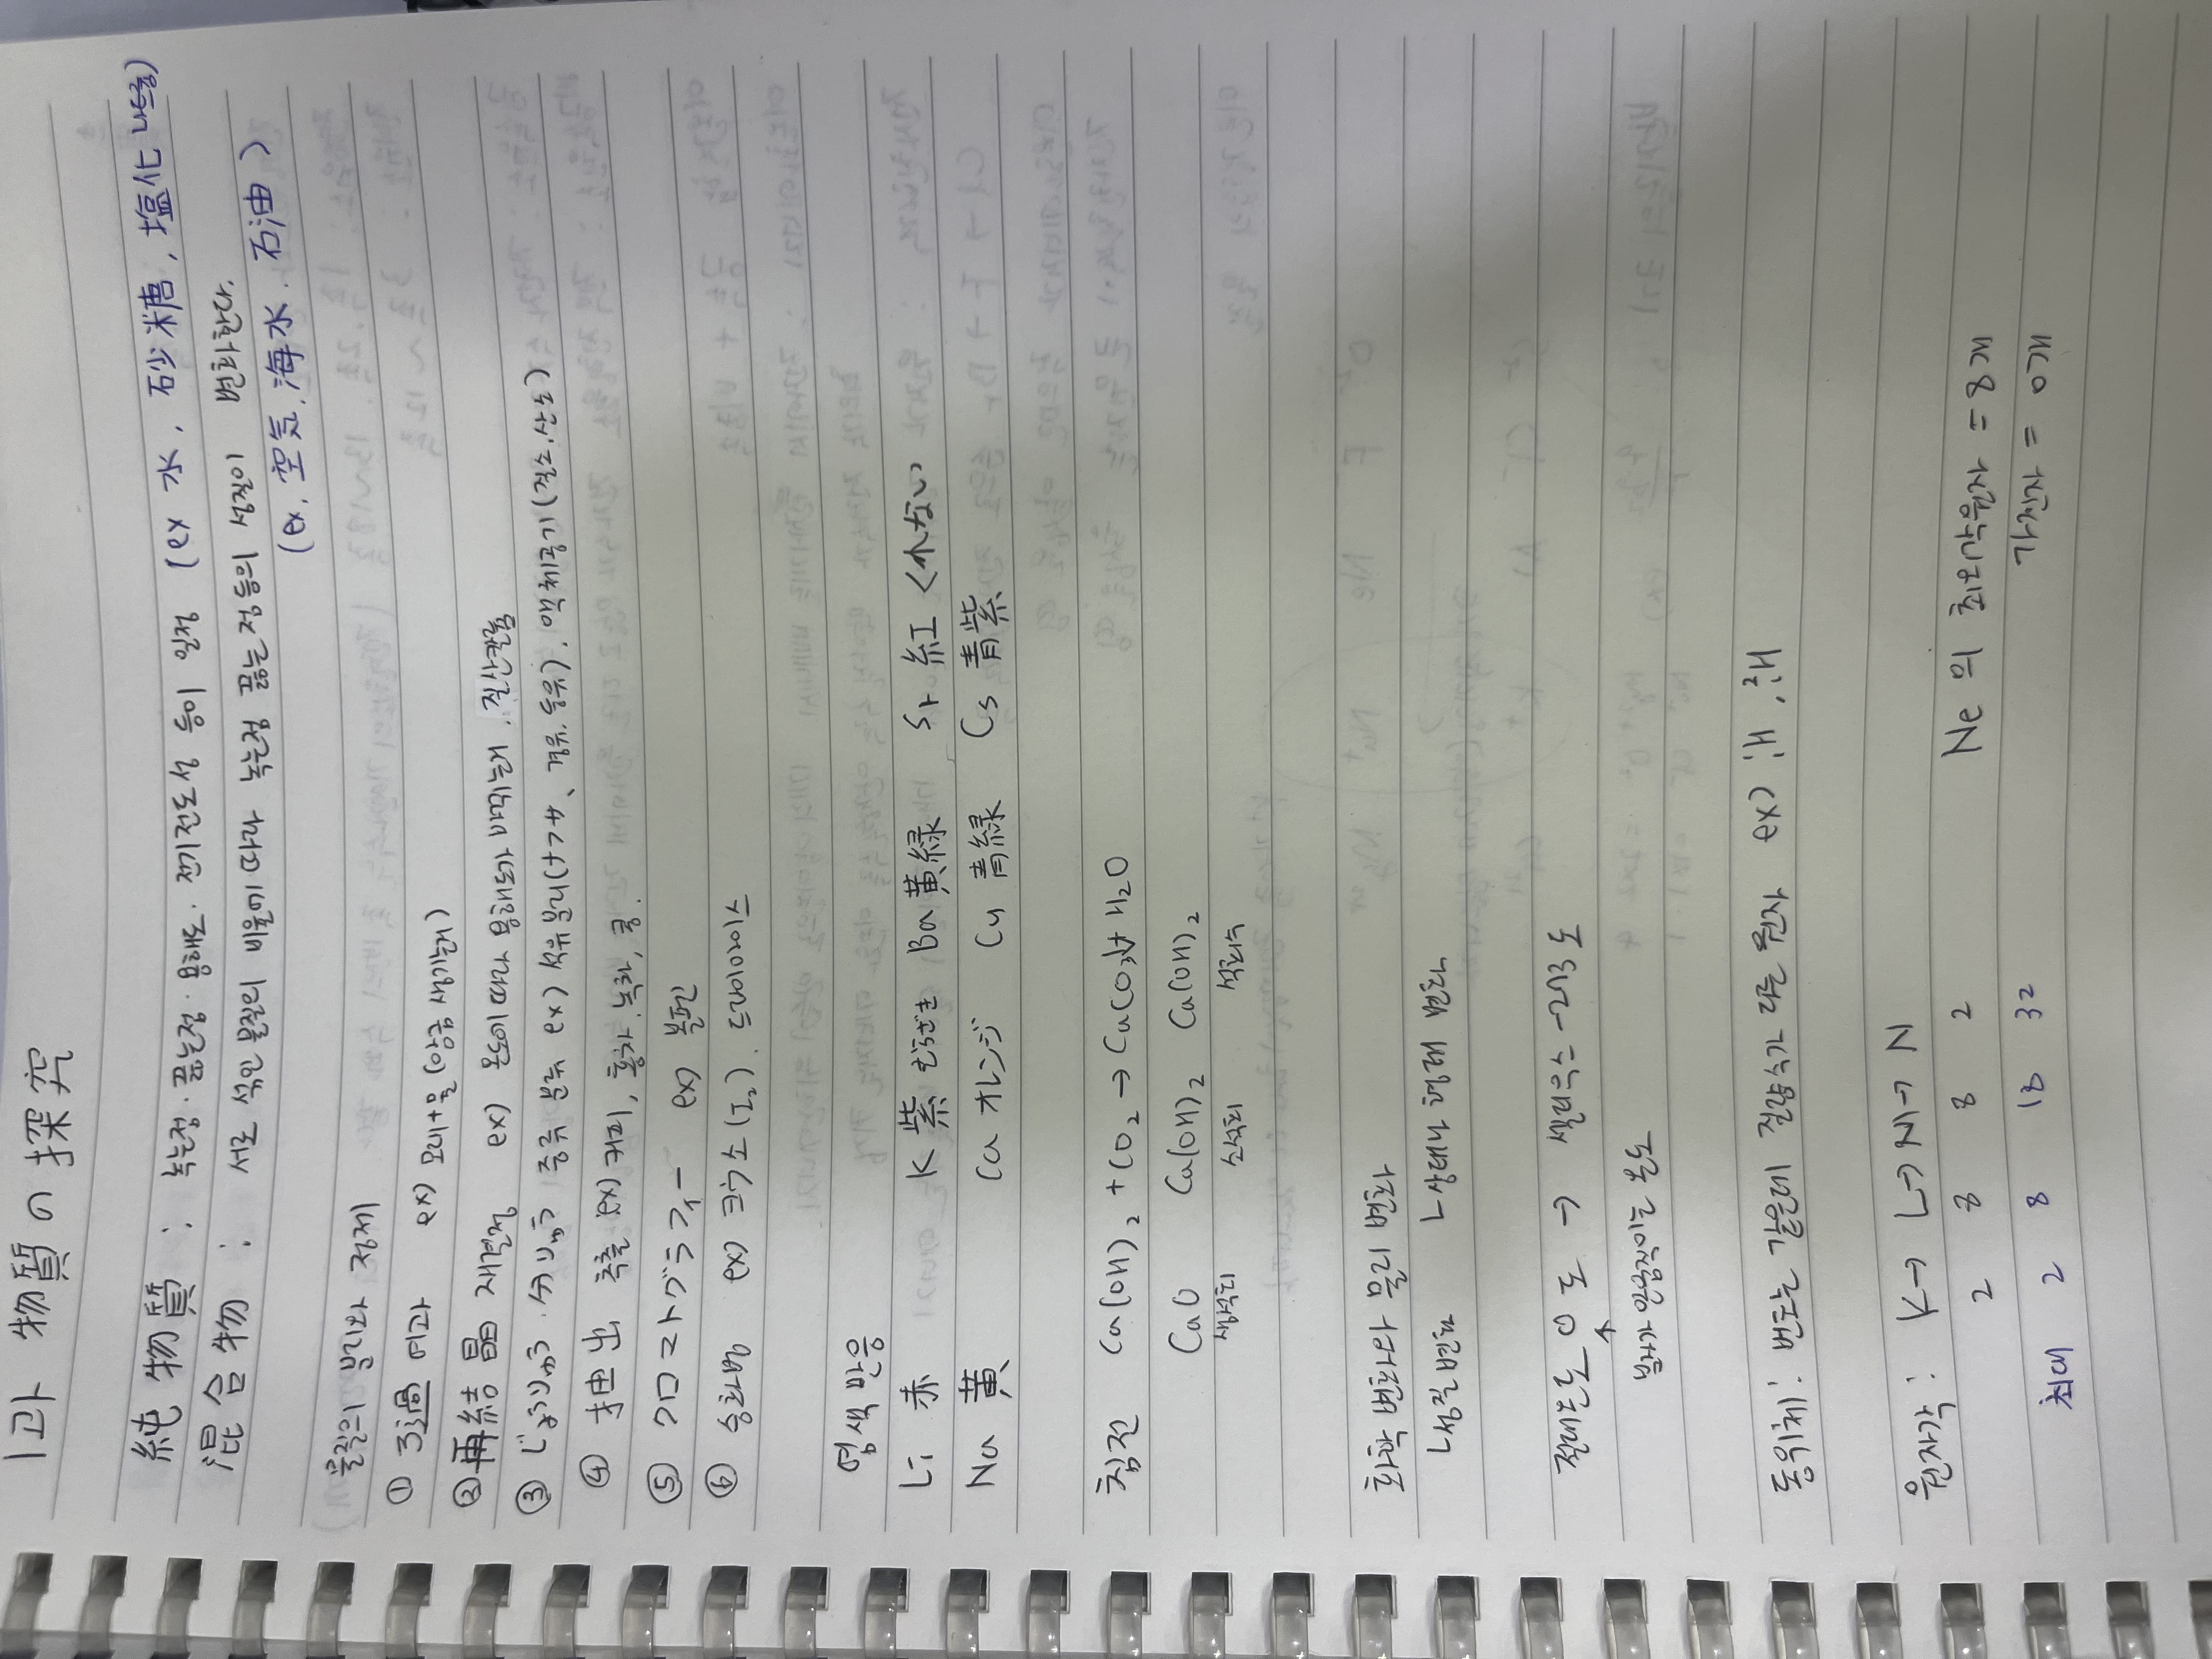 1과 物質の探究
純物質 : 녹는점·끓는점·용해도·전기전도성 등이 일정 (ex 水, 石少糖, 塩化ナトリウム)
混合物 : 서로 섞인 물질의 비율에 따라 녹는점 끓는점등의 성질이 변화한다.
(ex. 空気, 海水, 石油)
물질의 분리와 정제
① ろ過 여과 ex) 모래+물 (앙금 생기는거)
② 再結晶 재결정 ex) 온도에 따라 용해도가 바뀌는거, 질산칼륨
③ じょうりゅう. 分りゅう 증류 분류 ex) 석유분리(ナフサ、경유, 등유). 액체공기(질소, 산소)
④ 抽出 추출 ex) 커피, 홍차, 녹차, 콩.
⑤ クロマトグラフィー ex) 볼펜
⑥ 승화법 ex) 요오드(I₂). 드라이아이스
염색 반응
Li 赤 K 紫 むらさき Ba 黄緑 Sr 紅 <れない
Na 黄 Ca オレンジ Cu 青緑 Cs 青紫
침전 Ca(OH)₂ + CO₂ → CaCO₃↓+ H₂O
CaO Ca(OH)₂ Ca(OH)₂
생석회 소석회 석회수
화학 변화와 물리 변화
ㄴ성질 변화 ㄴ상태나 형태 변화
절대온도 0도 → 셀리우스 -273도
↑
분자가 안움직이는 온도
동위체 : 번호는 같은데 질량수가 다른 원자 ex) ¹₁H, ²₁H
원자각 : K→ L→ M→ N
2 8 8 2 Ne 의 최외각원자 = 8개
최대 2 8 18 32 가전자 = 0개